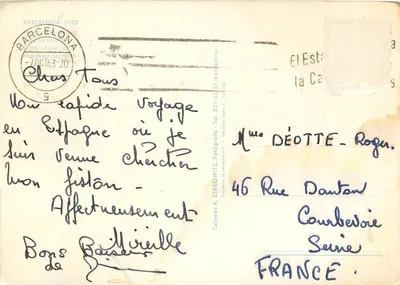 BARCELONA
BARCELONA
9
El Esta
la Ca
Chers Tous
Un rapide voyage
en Espagne où je
suis venue chercher
mon fiston -
Affectueusement
Mireille
Bons Baisers
de
Mme DÉOTTE - Roger.
46 Rue Danton
Courbevoie
Seine
FRANCE.